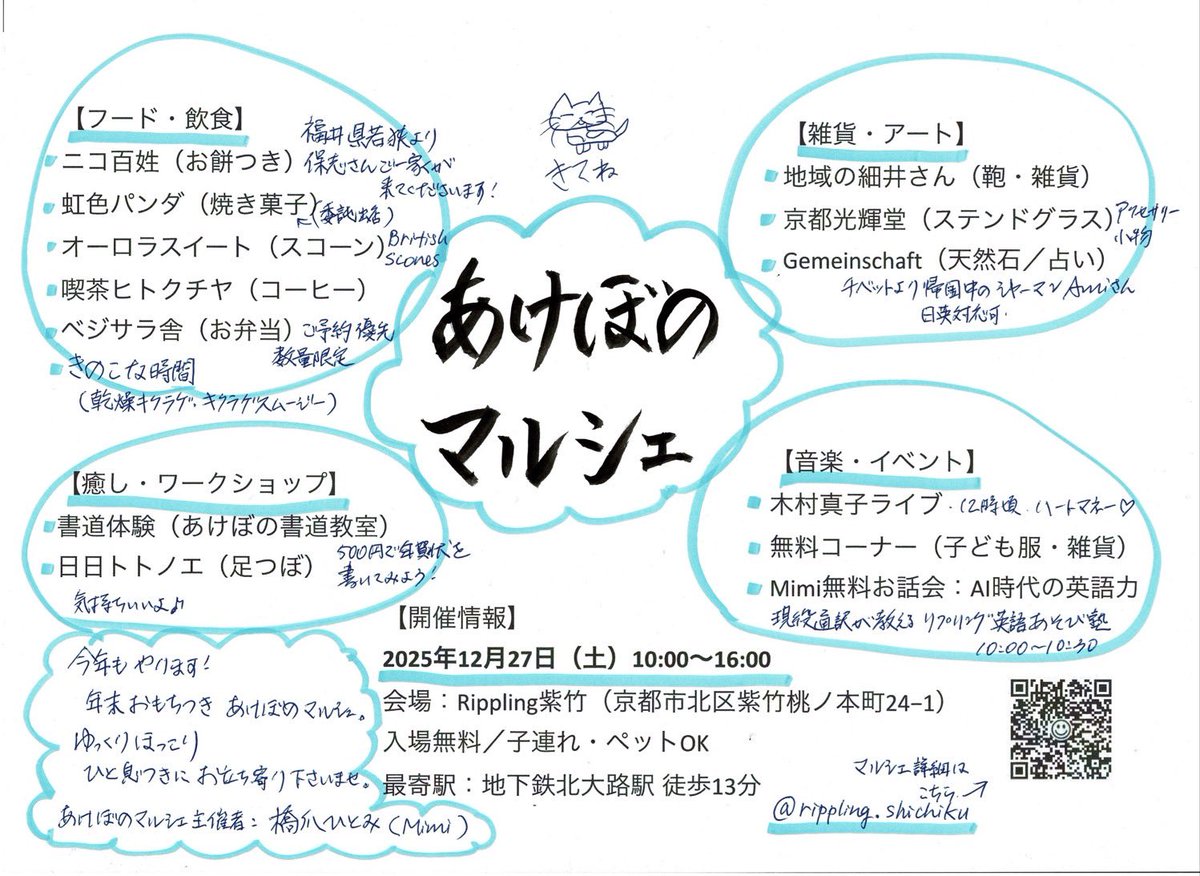 【フード・飲食】
ニコ百姓（お餅つき）
福井県若狭より
保志さんご一家が
来てくださいます！
虹色パンダ（焼き菓子）
（委託出店）
オーロラスイート（スコーン）
British
Scones
喫茶ヒトクチヤ（コーヒー）
ベジサラ舎（お弁当）ご予約優先
数量限定
きのこな時間
（乾燥キクラゲ・キクラゲスムージー）
きてね
あけぼの
マルシェ
【雑貨・アート】
地域の細井さん（鞄・雑貨）
京都光輝堂（ステンドグラス）アクセサリー
小物
Gemeinschaft（天然石／占い）
チベットより帰国中のシャーマン Amiさん
日英対応可
【癒し・ワークショップ】
書道体験（あけぼの書道教室）
500円で年賀状を
書いてみよう！
日日トトノエ（足つぼ）
気持ちいいよ♪
【音楽・イベント】
木村真子ライブ・12時頃 ハートマネー♡
無料コーナー（子ども服・雑貨）
Mimi無料お話会：AI時代の英語力
現役通訳が教える リプリング英語あそび塾
10:00〜10:30
今年もやります！
年末おもちつき あけぼのマルシェ。
ゆっくりほっこり
ひと息つきに お立ち寄り下さいませ。
あけぼのマルシェ主催者：橋爪ひとみ（Mimi）
【開催情報】
2025年12月27日（土）10:00〜16:00
会場：Rippling紫竹（京都市北区紫竹桃ノ本町24−1）
入場無料／子連れ・ペットOK
最寄駅：地下鉄北大路駅 徒歩13分
マルシェ詳細は
こちら→
@rippling.shichiku